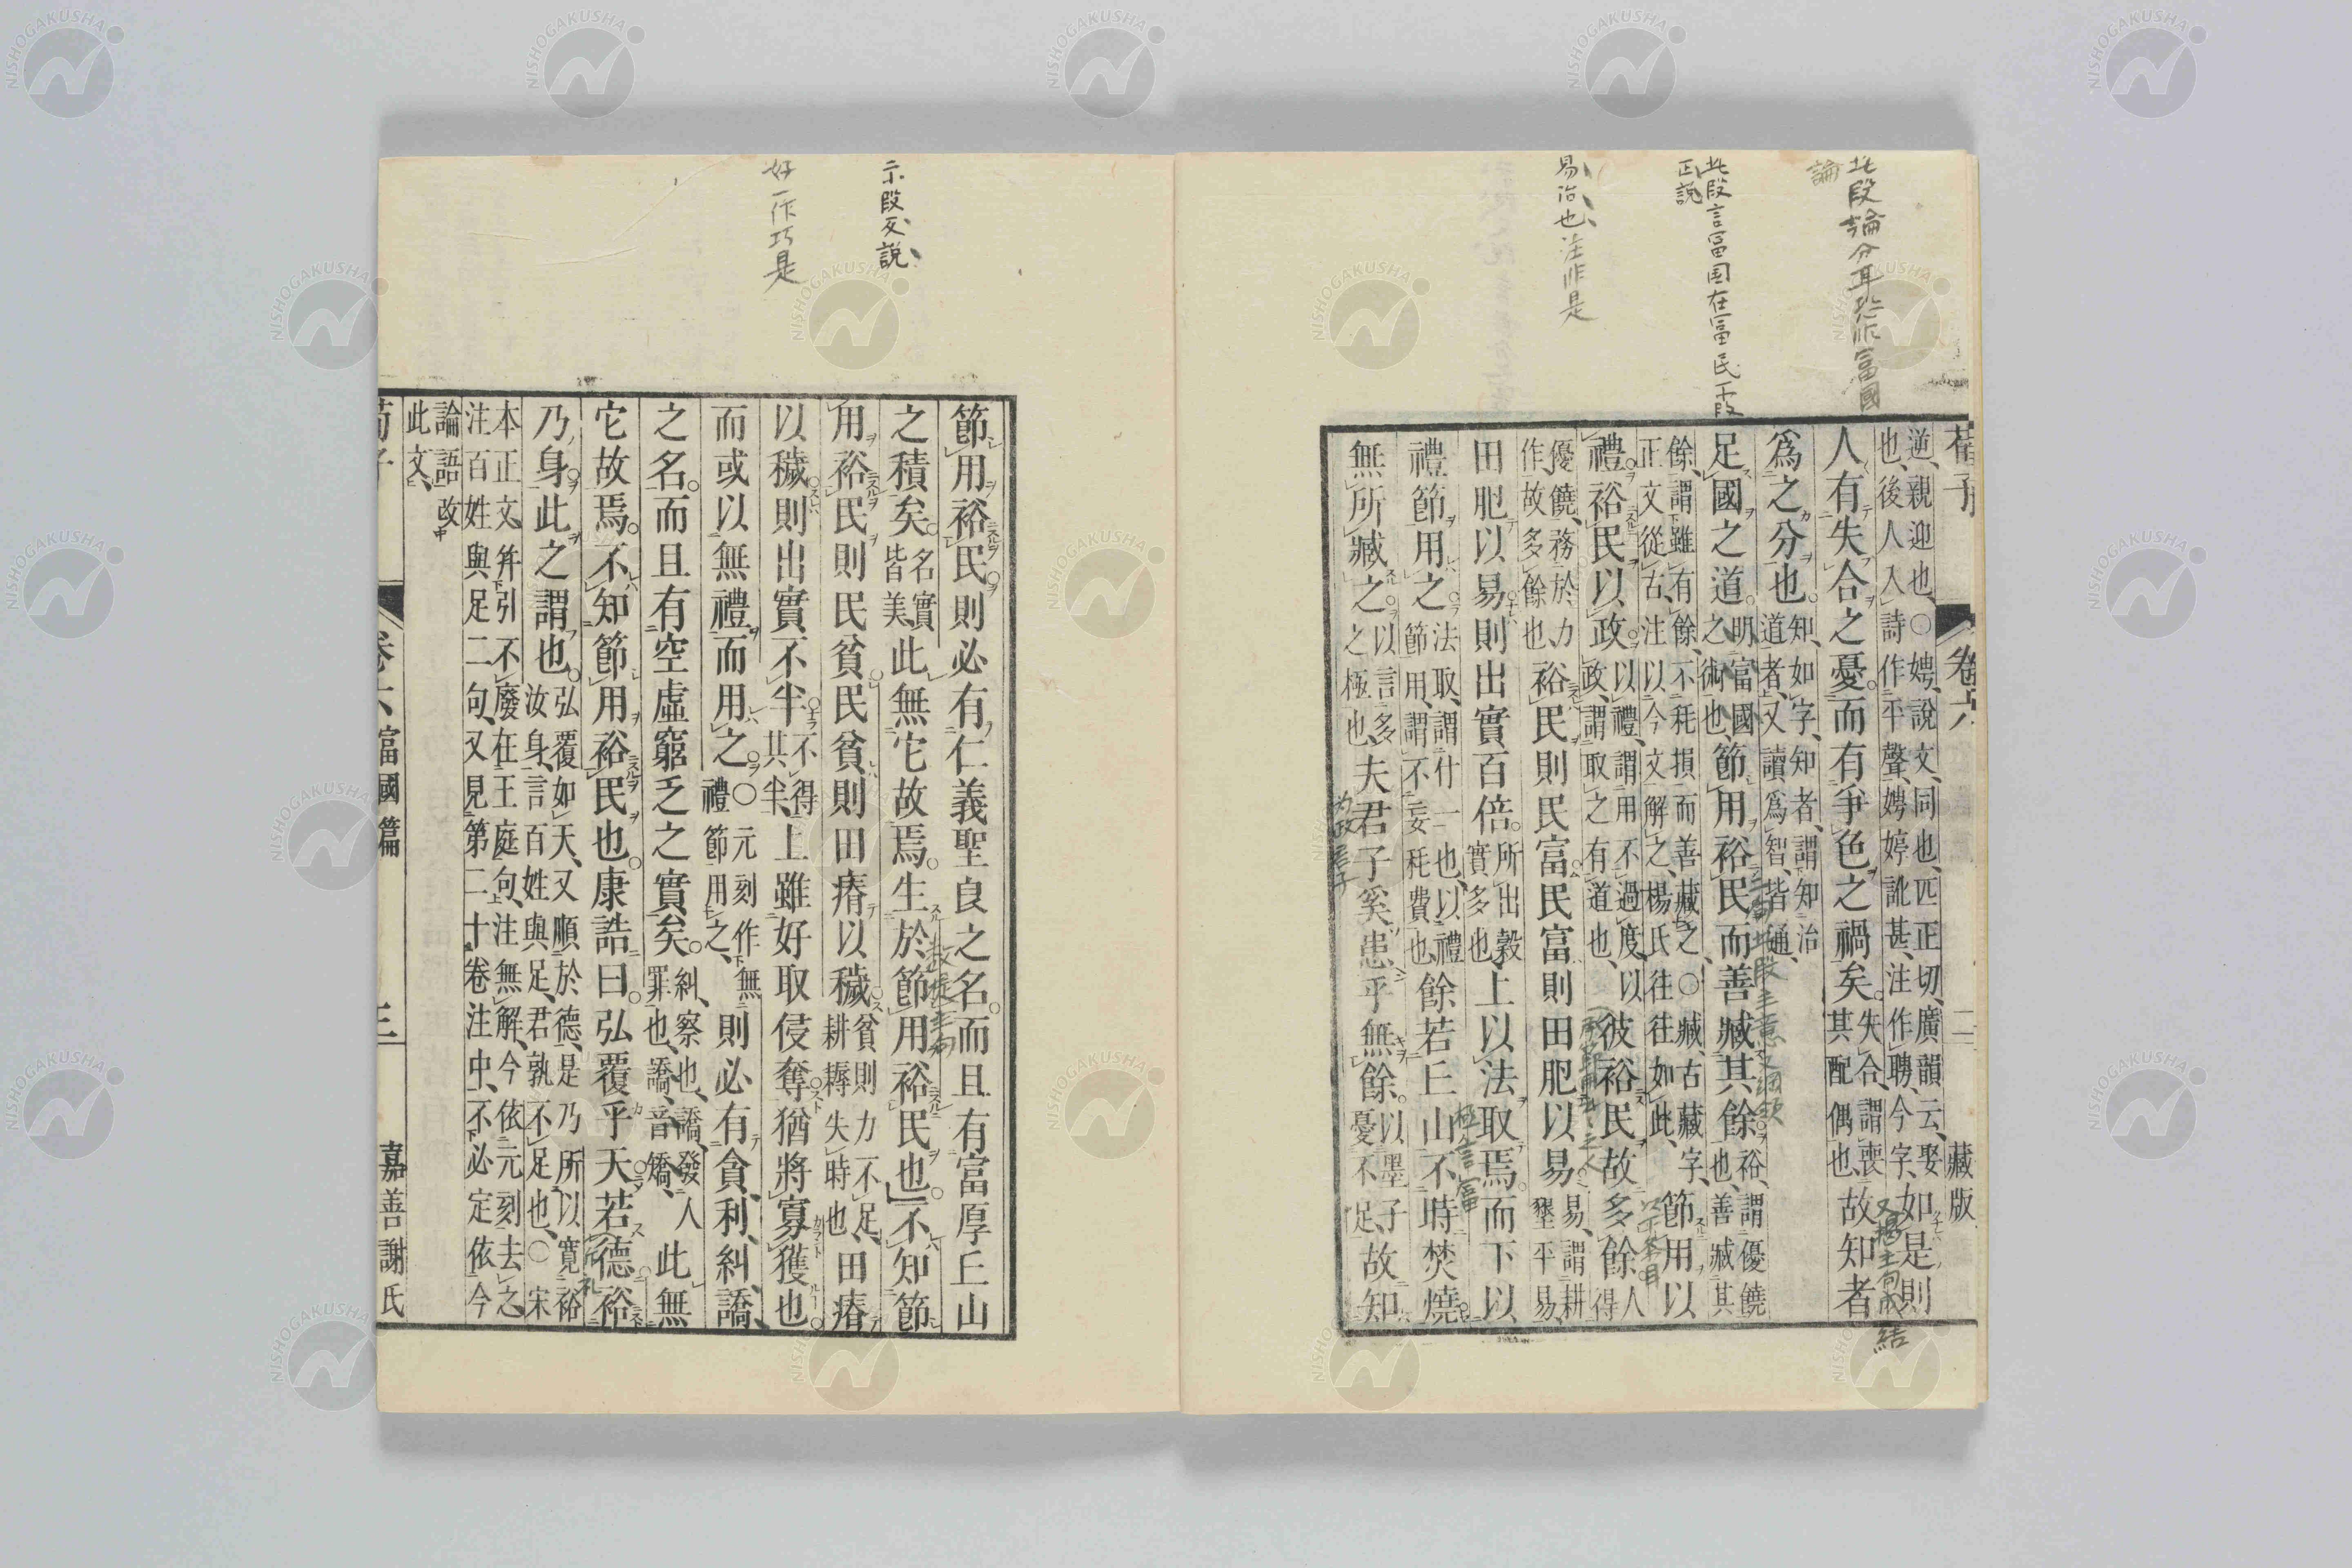 此段論分耳恐非富國
論
此段言富国在富民一段
正説
易治也注非是
荀子
卷六
二
藏版
逆、親迎也、○娉、說文、同也、匹正切、廣韻云、娶
也、後人入詩作平聲、娉婷訛甚、注作聘、今字、如是則
人有失合之憂。而有爭色之禍矣。失合、謂喪
其配偶也故知者
爲之分也。知、如字、知者、謂知治
道者、又讀爲智、皆通、
足國之道。明富國
之術也、節用裕民而善臧其餘。裕、謂優饒
也、善臧其
餘、謂雖有餘、不秏損而善藏之、○臧、古藏字、
正文從古、注以今文解之、楊氏往往如此、節用以
禮裕民以政。以禮、謂用不過度、以
政、謂取之有道也、彼裕民故多餘。人
得
優饒、務於力
作、故多餘也裕民則民富。民富則田肥以易。易、謂耕
墾平易、
田肥以易則出實百倍。所出穀
實多也、上以法取焉。而下以
禮節用之。法取、謂什一也、以禮
節用、謂不妄秏費也、餘若丘山不時焚燒
無所臧之。以言多
之極也、夫君子奚患乎無餘。以墨子
憂不足、故知
又揚主句成
結
以下条目
極言富
为政君子
示段反説
好一作巧是
節用裕民。則必有仁義聖良之名。而且有富厚丘山
之積矣。名實
皆美、此無它故焉。生於節用裕民也。不知節
用裕民則民貧。民貧則田瘠以穢。貧則力不足、
耕耨失時也、田瘠
以穢則出實不半。不得
其半、上雖好取侵奪猶將寡獲也。
而或以無禮而用之。○元刻作無
禮節用之、則必有貪利糾譑
之名。而且有空虛窮乏之實矣。糾、察也、譑、發人
罪也、譑、音矯、此無
它故焉。不知節用裕民也。康誥曰。弘覆乎天若德裕
乃身此之謂也。弘覆如天、又順於德、是乃所以寬裕
汝身、言百姓與足、君孰不足也、○宋
本正文、幷引不廢在王庭句、注無解、今依元刻去之、
注百姓與足二句、又見第二十卷注中、不必定依今
論語改
此文、
荀子
卷六富國篇
三
嘉善謝氏